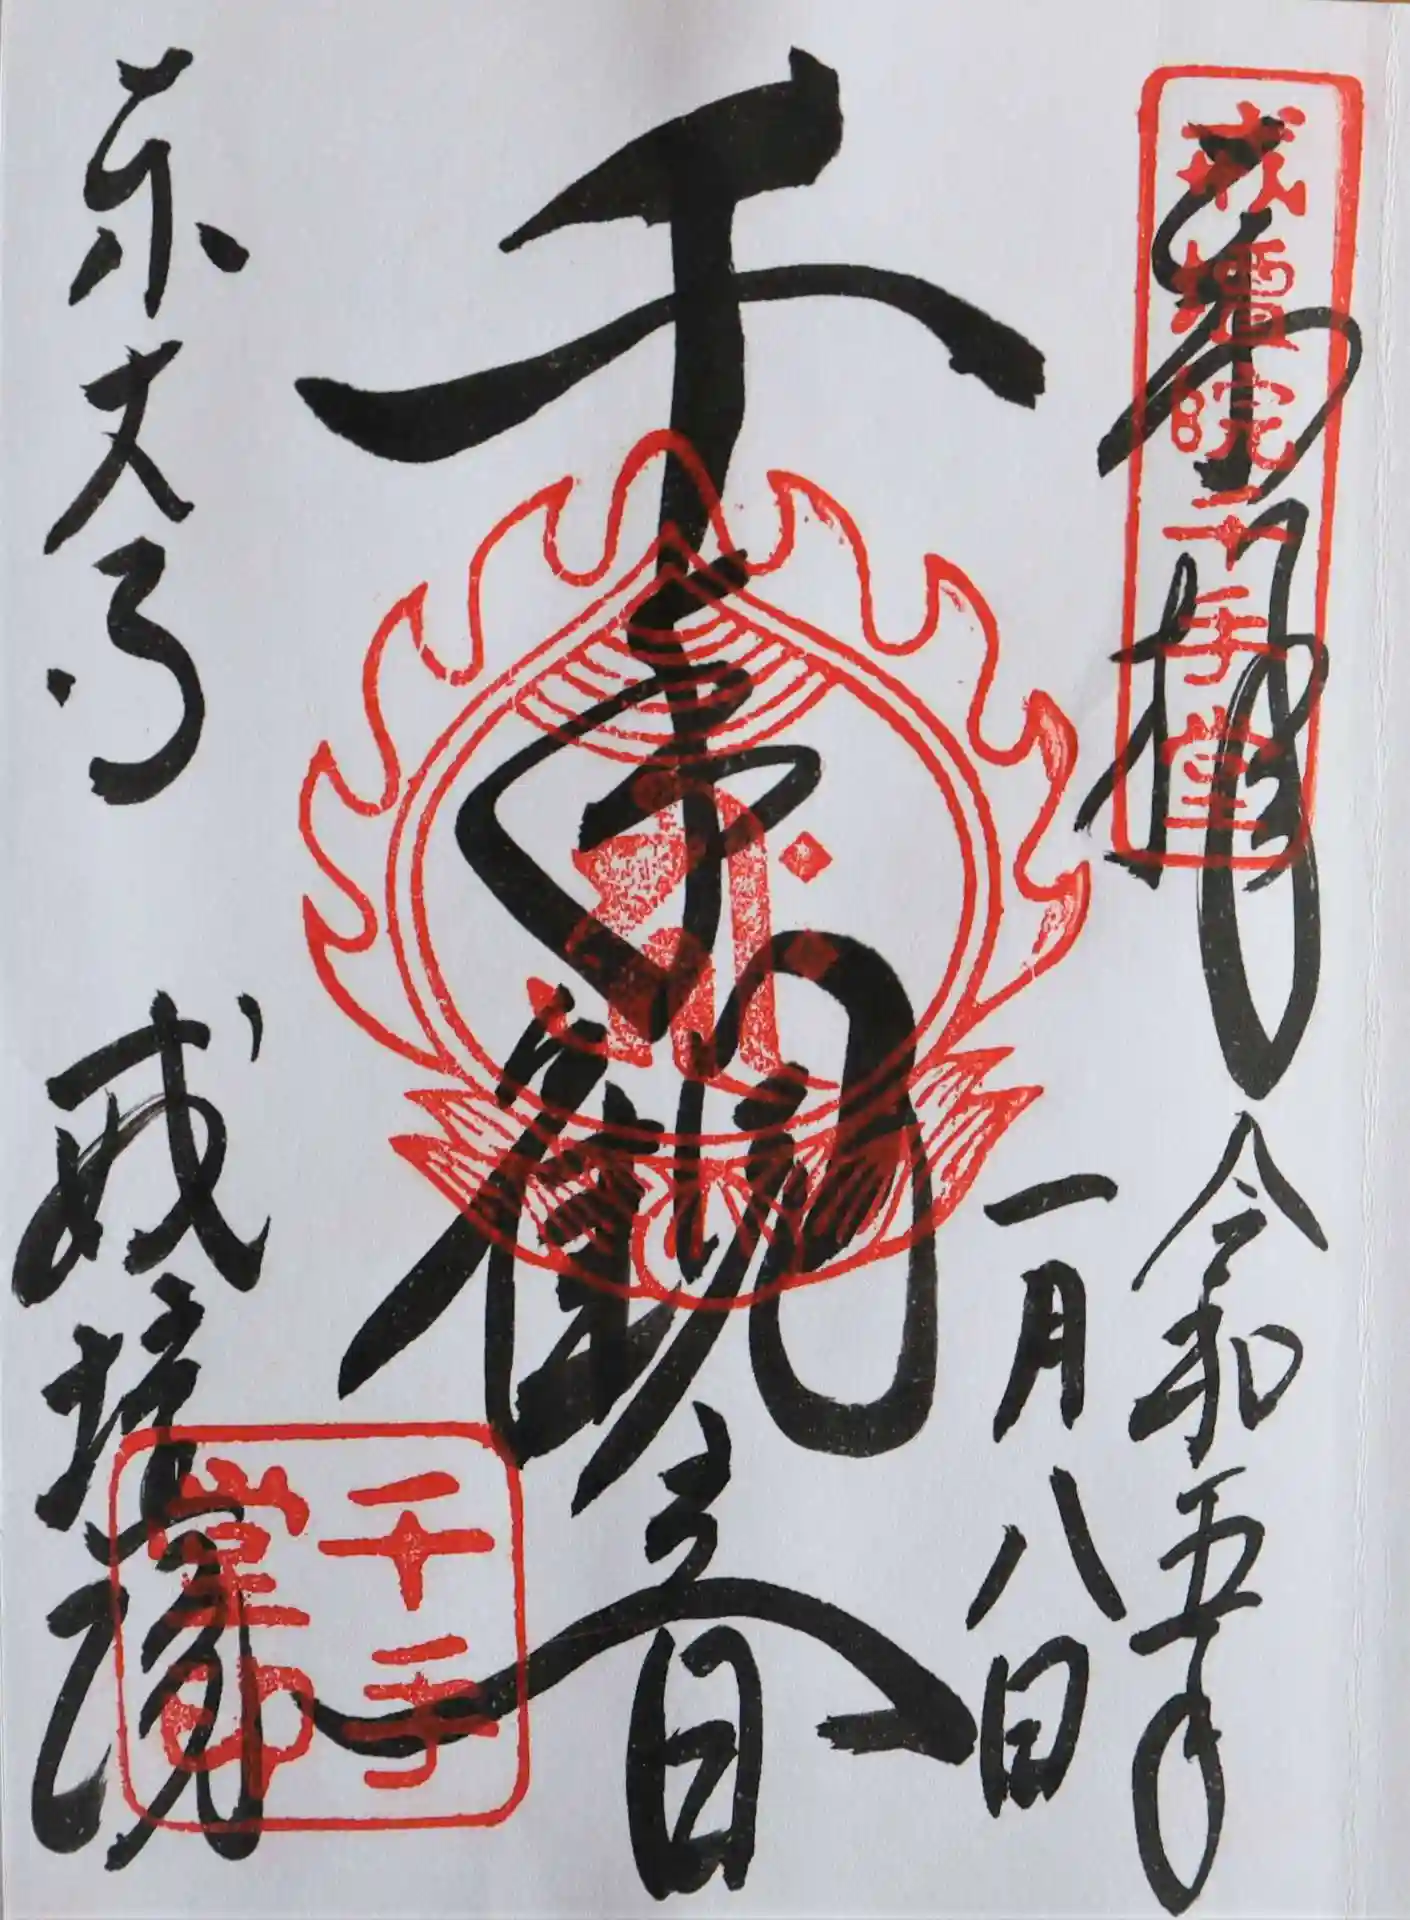 奉拝
戒壇院千手堂
令和五年
一月八日
千手観音
東大寺
戒壇院
千手
堂印